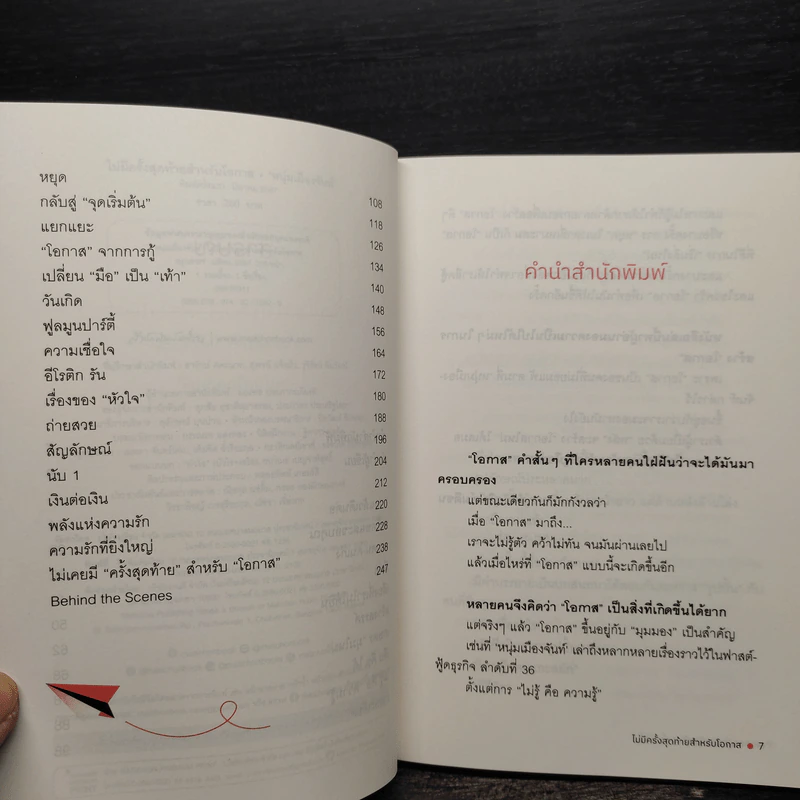 หยุด 108
กลับสู่ "จุดเริ่มต้น" 118
แยกแยะ 126
"โอกาส" จากการกู้ 134
เปลี่ยน "มือ" เป็น "เท้า" 140
วันเกิด 148
ฟูลมูนปาร์ตี้ 156
ความเชื่อใจ 164
อีโรติก รัน 172
เรื่องของ "หัวใจ" 180
ถ่ายสวย 188
สัญลักษณ์ 196
นับ 1 204
เงินต่อเงิน 212
พลังแห่งความรัก 220
ความรักที่ยิ่งใหญ่ 228
ไม่เคยมี "ครั้งสุดท้าย" สำหรับ "โอกาส" 238
Behind the Scenes 247
คำนำสำนักพิมพ์
"โอกาส" คำสั้นๆ ที่ใครหลายคนใฝ่ฝันว่าจะได้มันมา
ครอบครอง
แต่ขณะเดียวกันก็มักกังวลว่า
เมื่อ "โอกาส" มาถึง...
เราจะไม่รู้ตัว คว้าไม่ทัน จนมันผ่านเลยไป
แล้วเมื่อไหร่ที่ "โอกาส" แบบนี้จะเกิดขึ้นอีก
หลายคนจึงคิดว่า "โอกาส" เป็นสิ่งที่เกิดขึ้นได้ยาก
แต่จริงๆ แล้ว "โอกาส" ขึ้นอยู่กับ "มุมมอง" เป็นสำคัญ
เช่นที่ 'หนุ่มเมืองจันท์' เล่าถึงหลากหลายเรื่องราวไว้ในฟาสต์-
ฟู้ดธุรกิจ ลำดับที่ 36
ตั้งแต่การ "ไม่รู้ คือ ความรู้"
ไม่มีครั้งสุดท้ายสำหรับโอกาส ● 7